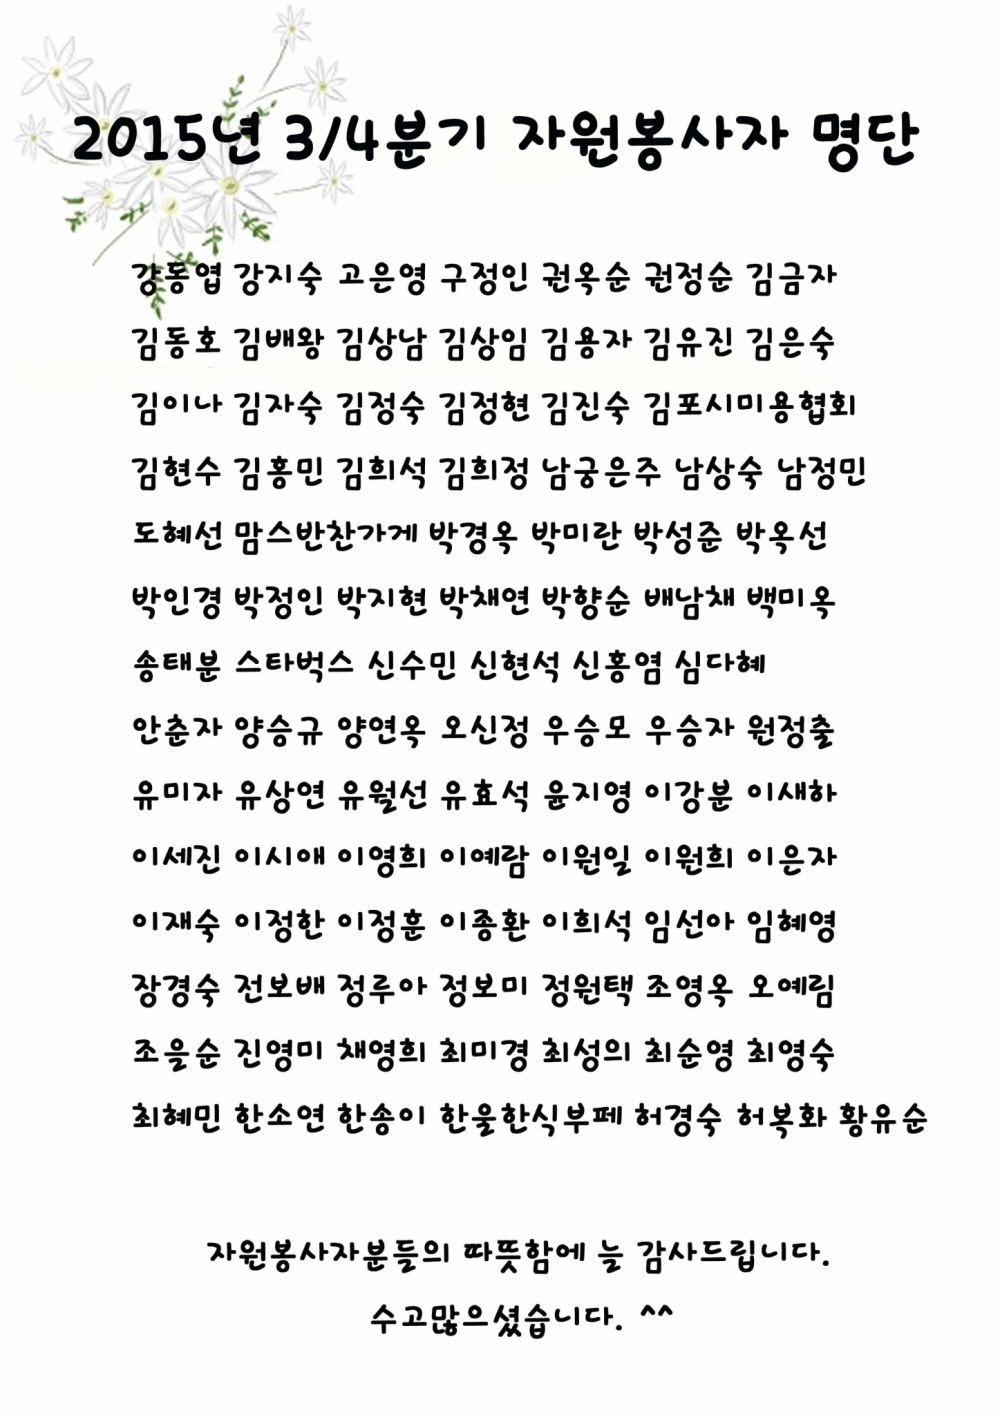 2015년 3/4분기 자원봉사자 명단
강동엽 강지숙 고은영 구정인 권옥순 권정순 김금자
김동호 김배왕 김상남 김상임 김용자 김유진 김은숙
김이나 김자숙 김정숙 김정현 김진숙 김포시미용협회
김현수 김홍민 김희석 김희정 남궁은주 남상숙 남정민
도혜선 맘스반찬가게 박경옥 박미란 박성준 박옥선
박인경 박정인 박지현 박채연 박향순 배남채 백미옥
송태분 스타벅스 신수민 신현석 신홍염 심다혜
안춘자 양승규 양연옥 오신정 우승모 우승자 원정출
유미자 유상연 유월선 유효석 윤지영 이강분 이새하
이세진 이시애 이영희 이예람 이원일 이원희 이은자
이재숙 이정한 이정훈 이종환 이희석 임선아 임혜영
장경숙 전보배 정루아 정보미 정원택 조영옥 오예림
조을순 진영미 채영희 최미경 최성의 최순영 최영숙
최혜민 한소연 한송이 한울한식부페 허경숙 허복화 황유순
자원봉사자분들의 따뜻함에 늘 감사드립니다.
수고많으셨습니다. ^^